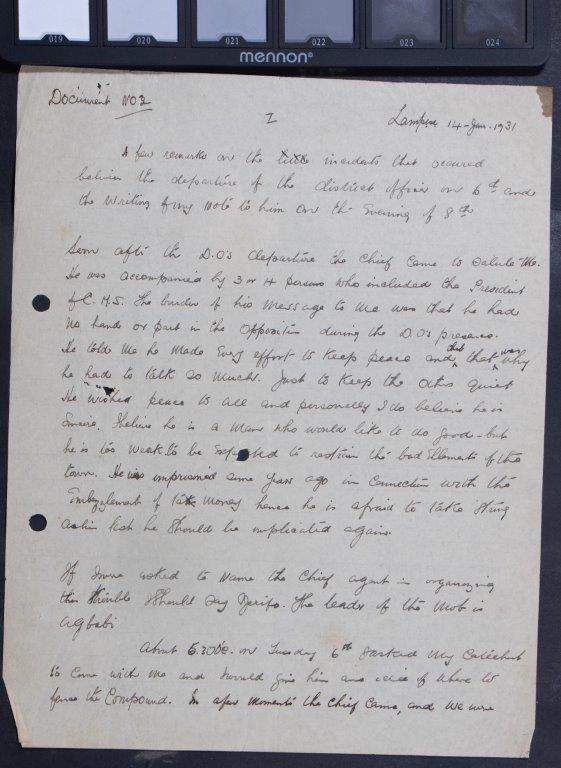 019 020 021 022 023 024
mennon®
Document No 2
I
14 - Jan. 1931
A few remarks on the incidents that occured
between the departure of the district officer on 6th and
the writing of my note to him on the Evening of 8th
Soon after the D.O's departure the Chief Came to salute me.
He was accompanied by 3 or 4 persons who included the President
of C.M.S. The burden of his message to me was that he had
no hand or part in the opposition during the D.O's presence.
He told me he made Every effort to keep peace and that that was why
he had to talk so much. Just to keep the others quiet
He wished peace to all and personally I do believe he is
Sincere. I believe he is a man who would like to do good - but
he is too weak to be expected to restrain the bad Elements of the
town. He was imprisoned some years ago in Connection with the
Embezzlement of tax money hence he is afraid to take strong
action lest he should be implicated again.
If I were asked to name the Chief agent in organizing
this trouble I should say The leader of the mob is
Agbabi
About 5.30 on Tuesday 6th I asked my Catechist
to come with me and I would give him an idea of where to
fence the Compound. In a few moments the Chief Came, and we were